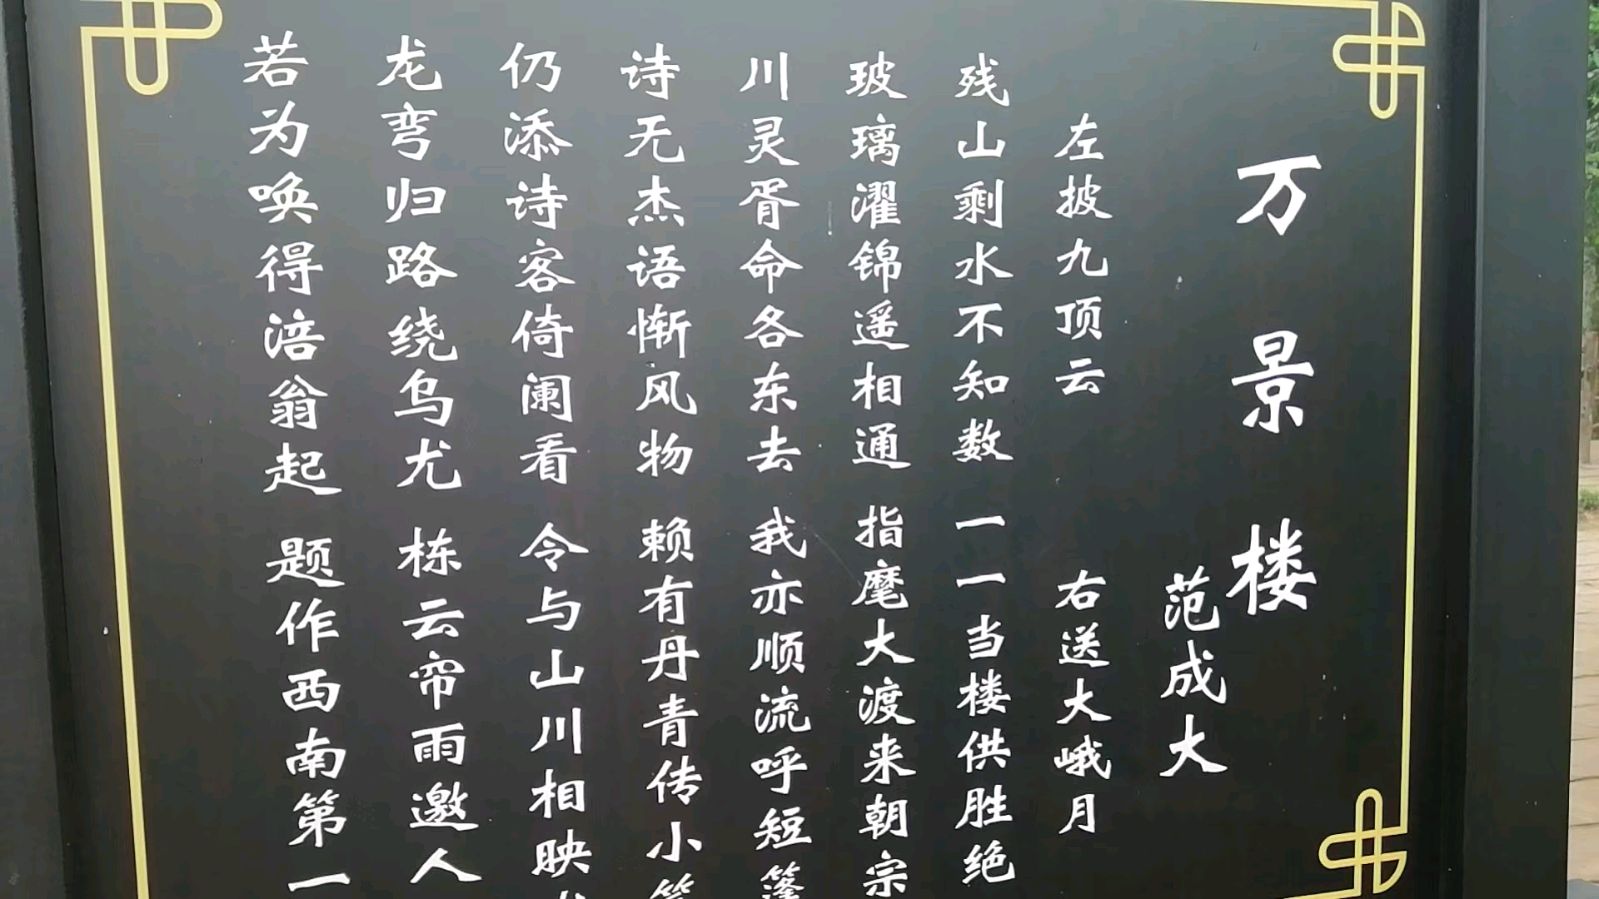 万景楼
范成大
左披九顶云 右送大峨月
残山剩水不知数 一一当楼供胜绝
玻璃濯锦遥相通 指麾大渡来朝宗
川灵胥命各东去 我亦顺流呼短篷
诗无杰语惭风物 赖有丹青传小
仍添诗客倚阑看 令与山川相映
龙弯归路绕乌尤 栋云帘雨邀人
若为唤得涪翁起 题作西南第一